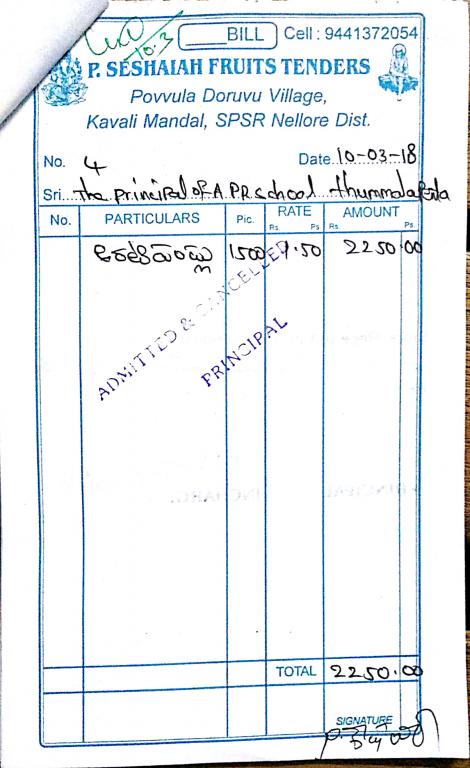 10.3
BILL Cell : 9441372054
P. SESHAIAH FRUITS TENDERS
Povvula Doruvu Village,
Kavali Mandal, SPSR Nellore Dist.
No. 4 Date. 10-03-18
Sri. The principal of A.P.R school thummalapenta
No. PARTICULARS Pic. RATE AMOUNT
Rs Ps Rs Ps
అరటిపండ్లు 1500 1.50 2250.00
ADMITTED & CANCELLED
PRINCIPAL
TOTAL 2250.00
SIGNATURE